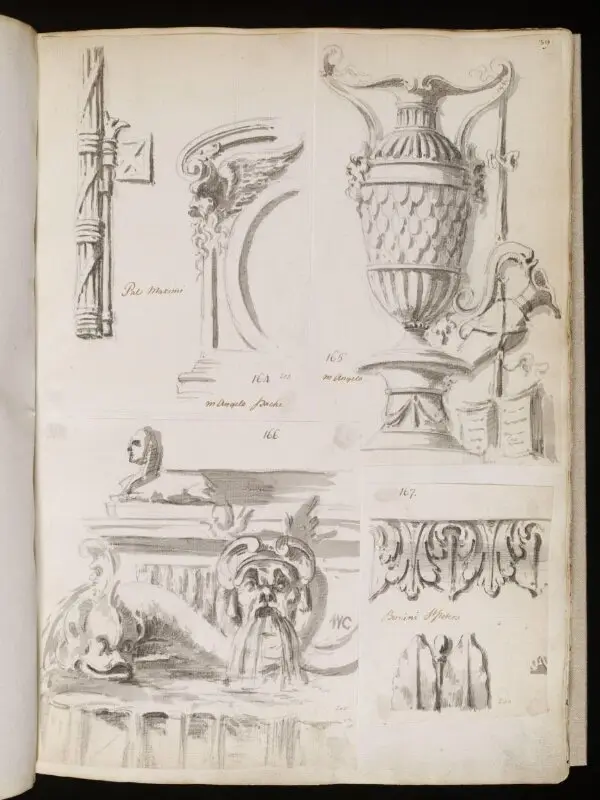 39
Pal: Maximi
164
M Angelo
165
M Angelo
166
WC
167.
Bernini St Peters